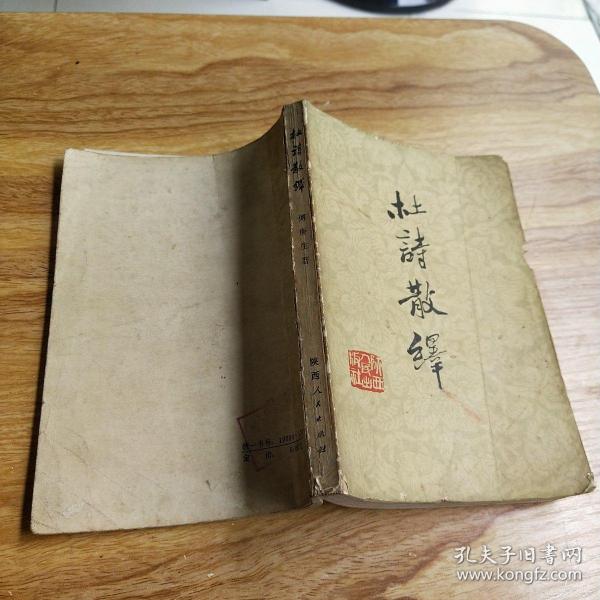 杜詩散繹
陕西人民出版社
杜詩散繹
傅庚生著
陕西人民出版社
统一书号
定价
孔夫子旧书网
www.kongfz.com